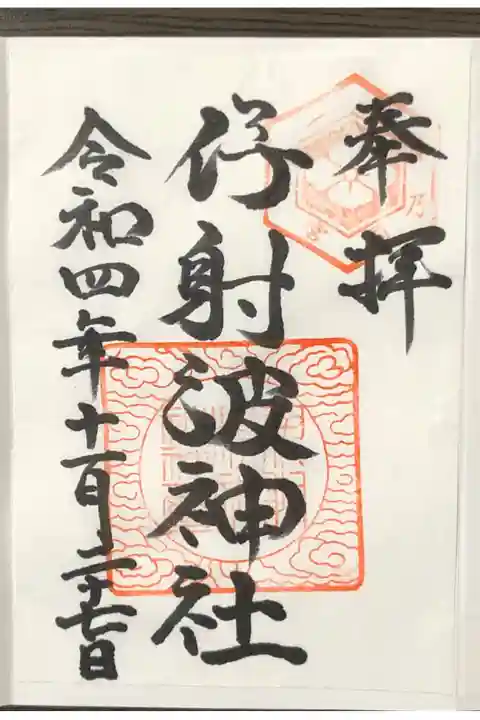 奉拝
伊射波神社
令和四年十一月二十七日